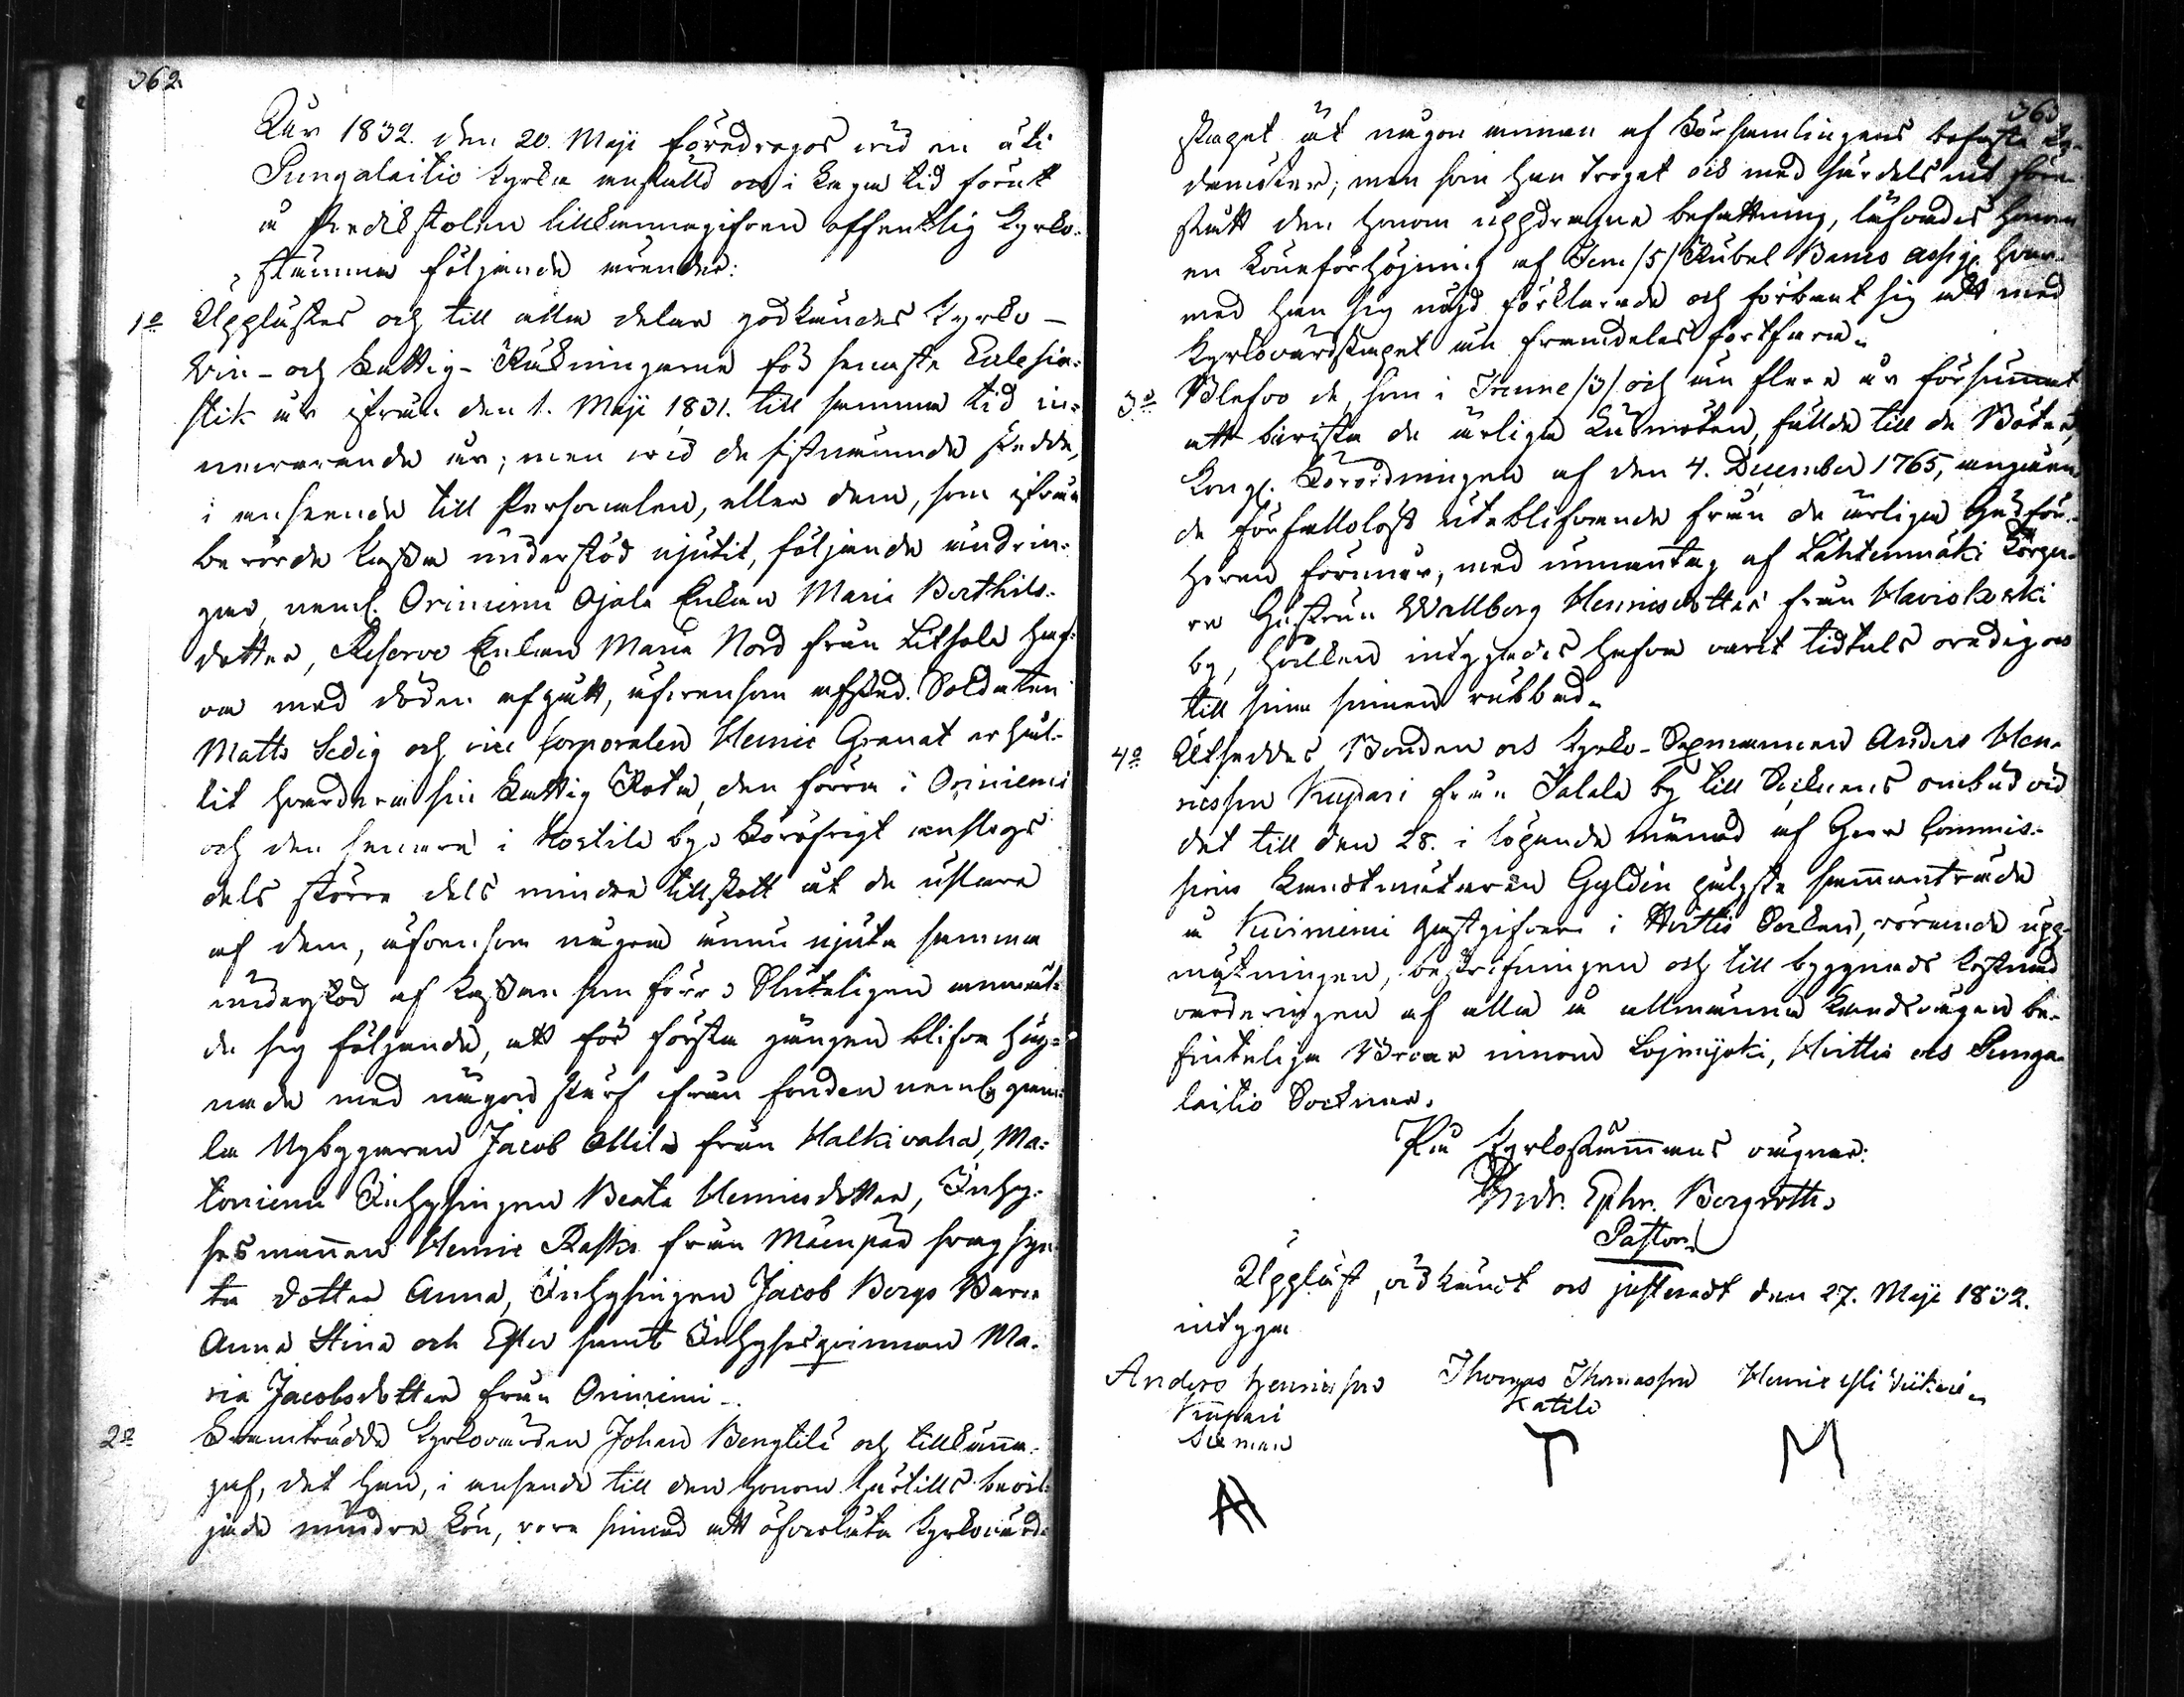 362.
Åhr 1832. den 20. Maji föredrogos wid en uti
Pungalaitio Kyrka anstäld och i laga tid förut
å Predikstolen tillkännagifven offentlig Kyrko-
stämma följande ärender:
1o Upplästes och till alla delar godkändes Kyrko-
Vin- och Fattig-Räkningarne för senaste Ecclesia-
stik år ifrån den 1. Maji 1831. till samma tid in-
nevarande år; men wid de sistnämnde skedde,
i anseende till Personalen, eller dem, som ifrån
berörde Kassa understöd njutit, följande ändrin-
gar, neml. Oriniemi Ojala Enkan Maria Berthils-
dotter, Reserve Enkan Maria Nord från Liksola haf-
va med döden afgått, äfvensom afsked. Soldaten
Matts Sedig och vice Corporalen Henric Granat erhål-
lit hvardera sin Fattig Rota, den förra i Oriniemi
och den senare i Kostila by. Föröfrigt anslogs
dels större dels mindre tillskott åt de uslare
af dem, äfvensom några ännu njuta samma
understöd af Kassan som förr. Sluteligen anmäl-
de sig följande, att för första gången blifva hug-
nade med någon skärf ifrån fonden neml. gam-
la Nybyggaren Jacob Ollila från Halkivaha, Ma-
toniemi Inhysingen Beata Henricsdotter, Inhy-
sesmannen Henric Rasks från Mäenpää svagsyn-
ta dotter Anna, Inhysingen Jacob Bergs Barn
Anna Stina och Ester samt Inhysesqvinnan Ma-
ria Jacobsdotter från Oriniemi.
2o Framträdde Kyrkovärden Johan Bengtilä och tillkänna-
gaf, det han, i anseende till den honom härtills bevil-
jade mindre lön, vore sinnad att öfverlåta Kyrkovärd-
363
skapet åt någon annan af Församlingens bofaste
damöter; men som han troget och med särdeles nit före-
stått den honom uppdragne befattning, läfvades honom
en löneförhöjning af Fem /5/ Rubel Banco Assign. hvar-
med han sig nöjd förklarade och förband sig att med
Kyrkovärdskapet än framdeles fortfara.
3o Blefvo de, som i Trenne /3/ och än flere år försummat
att bivista de årliga Läsmöten, fällde till de Böter,
Kongl. Förordningen af den 4. December 1765, angåen-
de förfallolöst uteblifvande från de årliga Husför-
hören förmår, med unnantag af Lähtenmäki Torpa-
re Hustrun Wallborg Henricsdotter från Haviokoski
by, hvilken intygades hafva varit tidtals oredig och
till sina sinnen rubbad.
4o Utsåddes Bonden och Kyrko-Sexmannen Anders Hen-
ricsson Kupari från Talala by till Socknens ombud vid
det till den 28. i löpande månad af Herr Commis-
sions Landtmätaren Gyldén pålyste sammanträde
å Kuiniemi gästgifveri i Hvittis Socken, rörande upp-
mätningen, beskrifningen och till byggnads kostnad
värderingen af alla å allmänna Landsvägen be-
finteliga Broar innom Loimijoki, Hvittis och Punga-
laitio Socknar.
På Kyrkostämmans vägnar:
Andr. Ephr. Bergroth.
Pastor
Uppläst, vidkändt och justeradt den 27. Maji 1832.
intyga
Anders Henricsson Thomas Thomasson Henric
Kupari Katila
Sexman
AH T M